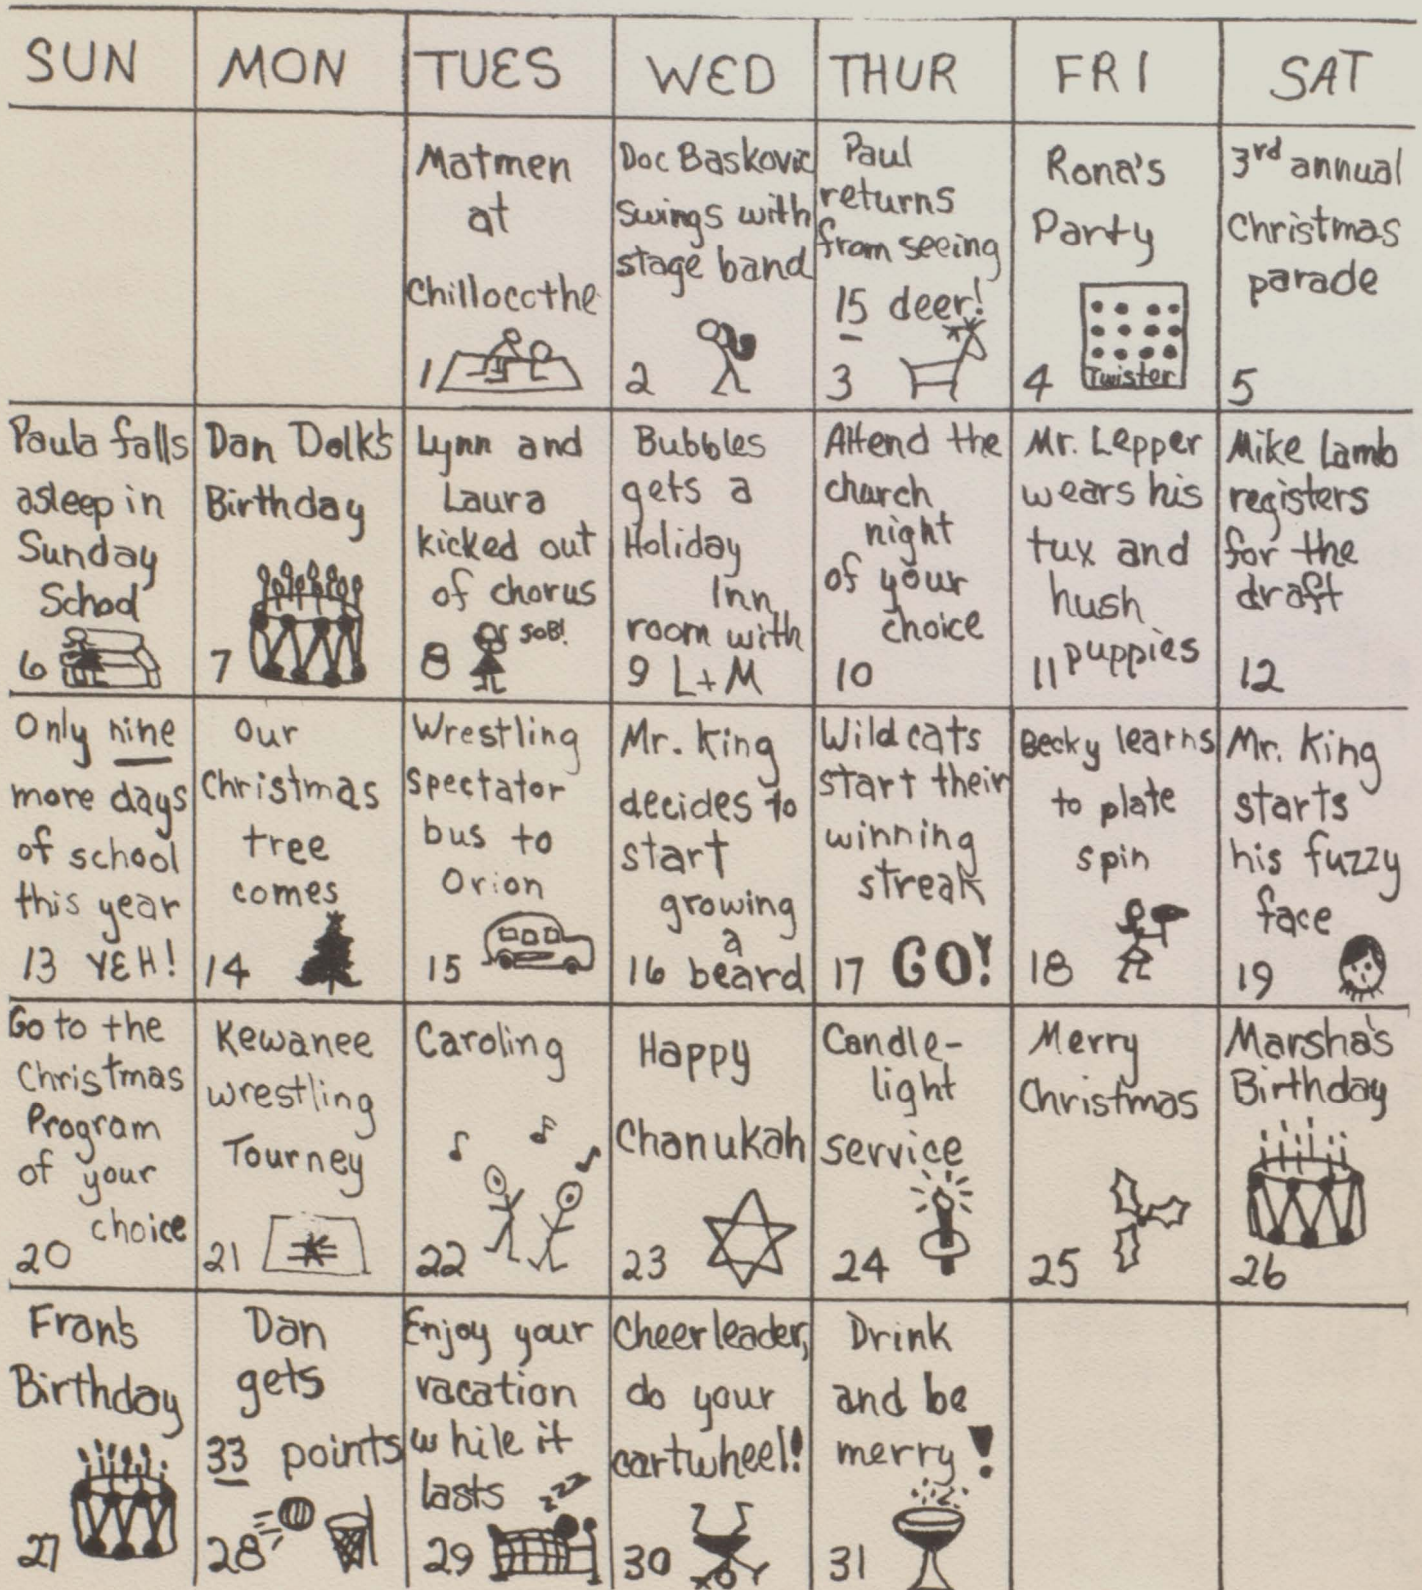 SUN MON TUES WED THUR FRI SAT
Matmen
at
Chillocothe
1
Doc Baskovic
swings with
stage band
2
Paul
returns
from seeing
15 deer!
3
Rona's
Party
Twister
4
3rd annual
Christmas
parade
5
Paula falls
asleep in
Sunday
School
6
Dan Dolk's
Birthday
7
Lynn and
Laura
kicked out
of chorus
SOB!
8
Bubbles
gets a
Holiday
Inn
room with
9 L+M
Attend the
church
night
of your
choice
10
Mr. Lepper
wears his
tux and
hush
puppies
11
Mike Lamb
registers
for the
draft
12
Only nine
more days
of school
this year
13 YEH!
Our
Christmas
tree
comes
14
Wrestling
spectator
bus to
Orion
15
Mr. King
decides to
start
growing
a
16 beard
Wildcats
start their
winning
streak
17 GO!
Becky learns
to plate
spin
18
Mr. King
starts
his fuzzy
face
19
Go to the
Christmas
Program
of your
choice
20
Kewanee
wrestling
Tourney
21
Caroling
22
Happy
Chanukah
23
Candle-
light
service
24
Merry
Christmas
25
Marsha's
Birthday
26
Fran's
Birthday
27
Dan
gets
33 points
28
Enjoy your
vacation
while it
lasts
zzz
29
Cheerleader,
do your
cartwheel!
30
Drink
and be
merry!
31